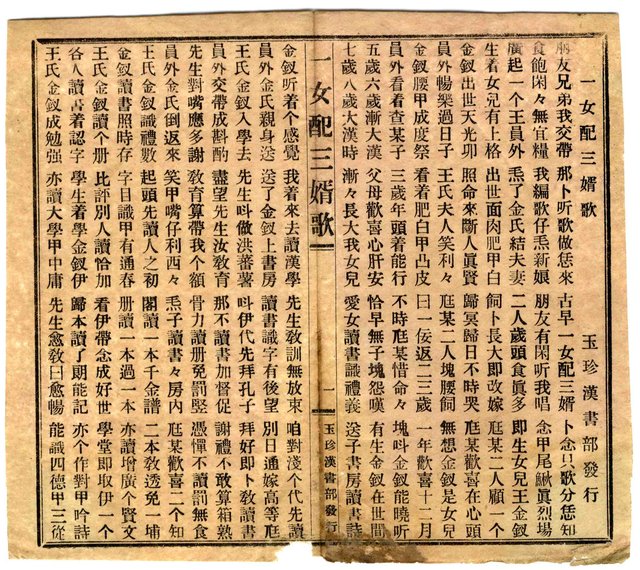 一女配三婿歌 玉珍漢書部發行
朋友兄弟我交帶 那卜听歌做恁來 古早一女配三婿 卜念只歌分恁知
食飽閑々無宜糧 我編歌仔𤆬新娘 朋友有閑听我唱 念甲尾溜眞烈場
廣起一个王員外 𤆬了金氏結夫妻 二人歲頭食眞多 即生女兒王金釵
生着女兒有上格 出世面肉肥甲白 飼卜長大即改嫁 尫某二人顧一个
金釵出世天光卯 照命來斷人眞賢 歸冥歸日不時哭 尫某歡喜在心頭
員外暢樂過日子 王氏夫人笑利々 尫某二人塊腰飼 無想金釵是女兒
金釵腰甲成度祭 看着肥白甲凸皮 曰一佞返二三歲 一年歡喜十二月
員外看着查某子 三歲年頭着能行 不時尫某惜命々 塊呌金釵能曉听
五歲六歲漸大漢 父母歡喜心肝安 恰早無子塊怨嘆 有生金釵在世間
七歲八歲大漢時 漸々長大我女兒 愛女讀書識禮義 送子書房讀書詩
一女配三婿歌 一 玉珍漢書部發行
金釵听着个感覺 我着來去讀漢學 先生教訓無放束 咱對淺个代先讀
員外金氏親身送 送了金釵上書房 讀書識字有後望 別日通嫁高等尫
王氏金釵入學去 先生呌做洪蕃薯 呌伊代先拜孔子 拜好即卜教讀書
員外交帶成斟酌 盡望先生汝敎育 那不讀書加督促 謝禮不敢算箱熟
先生對嘴應多謝 敎育算帶我个額 骨力讀册免罰竪 憑憚不讀罰無食
員外金氏倒返來 笑甲嘴仔利西々 𤆬子讀書々房內 尫某歡喜二个知
王氏金釵識禮數 起頭先讀人之初 閣讀一本千金譜 二本敎透免一埔
金釵讀書照時存 字目識甲有通春 册讀一本過一本 亦讀增廣个賢文
王氏金釵讀个册 比評別人讀恰加 看伊帶念成好世 學堂即取伊一个
各人讀書着認字 學生着學金釵伊 歸本讀了朗能記 亦个作對甲吟詩
王氏金釵成勉強 亦讀大學甲中庸 先生愈敎曰愈暢 能識四德甲三從